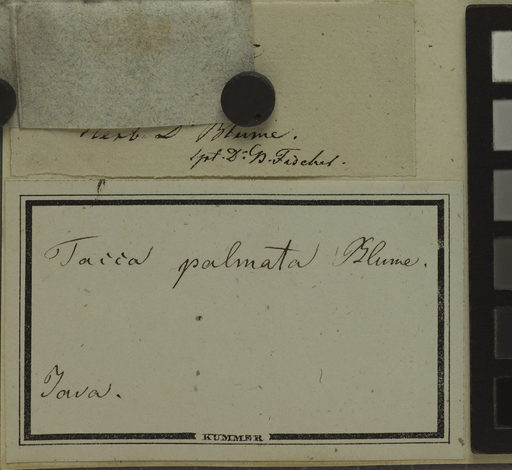 Herb. D Blume.
spt. Dr. B. Fischer.
Tacca palmata Blume.
Java.
KUMMER